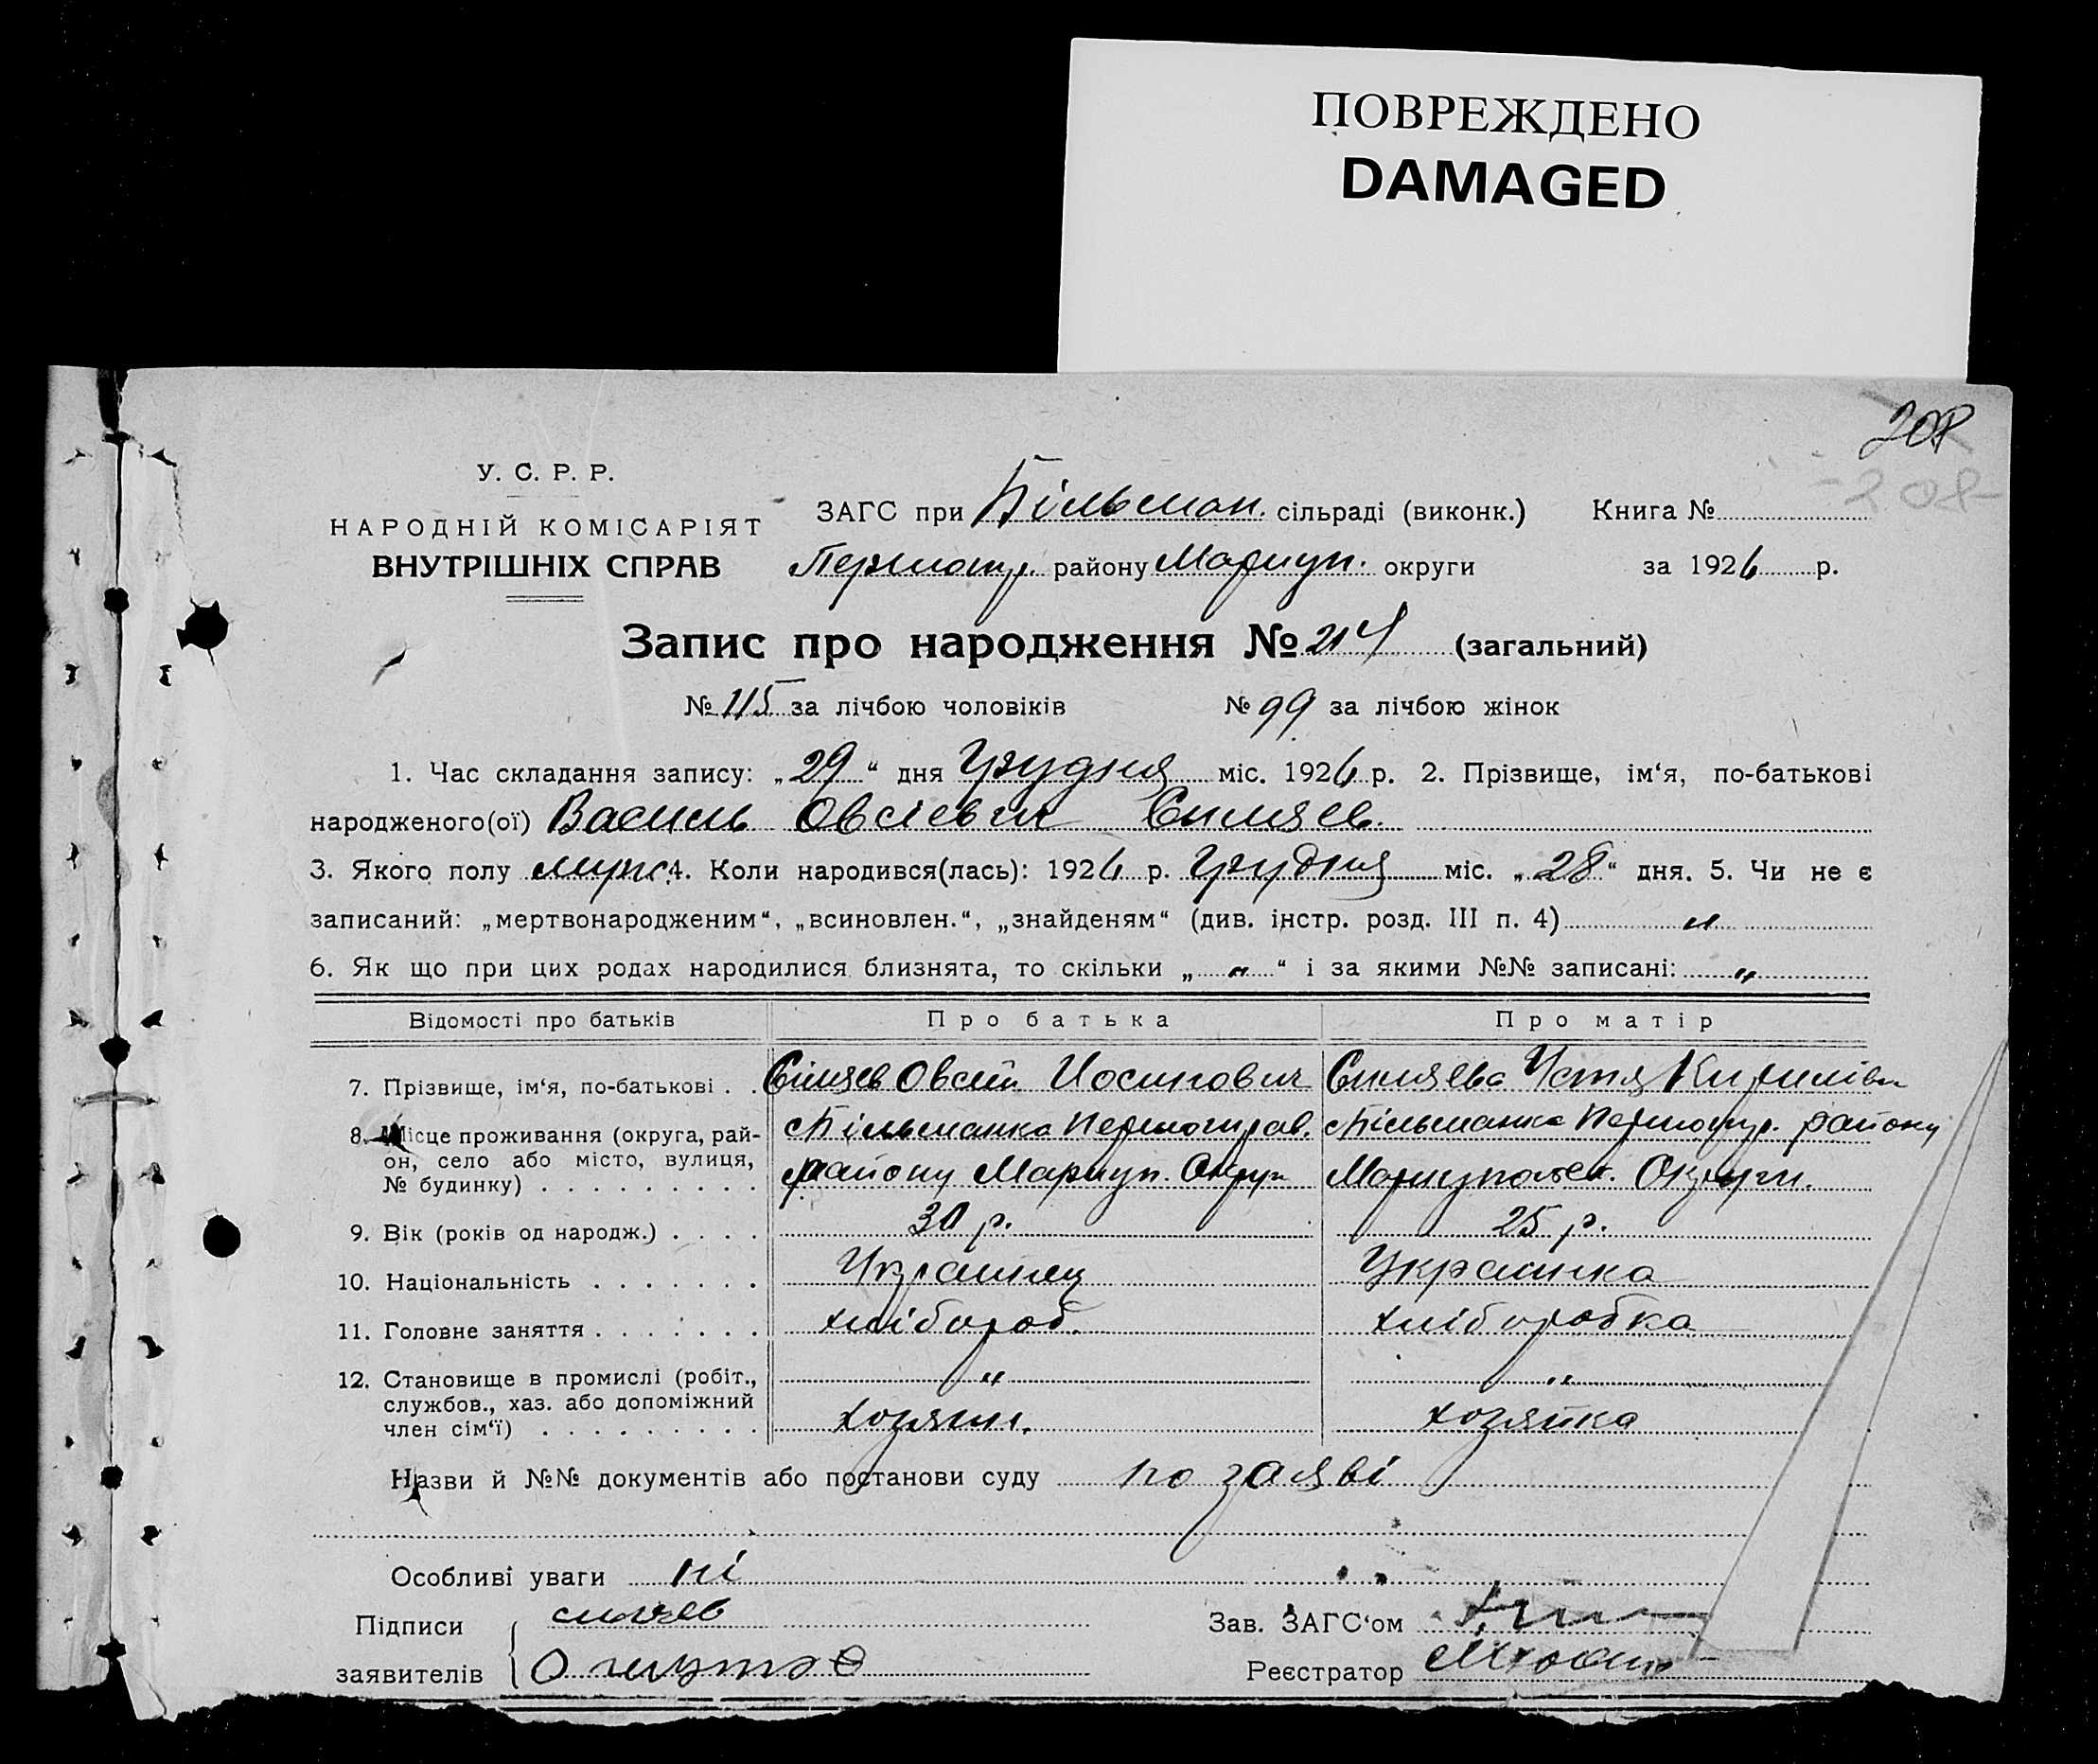 ПОВРЕЖДЕНО
DAMAGED
208
-208-
У. С. Р. Р.
НАРОДНІЙ КОМІСАРІЯТ
ВНУТРІШНІХ СПРАВ
ЗАГС при Більман. сільраді (виконк.) Книга №
району Мариуп. округи за 1926 р.
Запис про народження № 214 (загальний)
№ 115 за лічбою чоловіків № 99 за лічбою жінок
1. Час складання запису: „29“ дня Грудня міс. 1926 р. 2. Прізвище, ім‘я, по-батькові
народженого(ої) Василь Овсієвич Силяєв.
3. Якого полу муж. 4. Коли народився(лась): 1926 р. Грудня міс. „28“ дня. 5. Чи не є
записаний: „мертвонародженим“, „всиновлен.“, „знайденям“ (див. інстр. розд. III п. 4) „
6. Як що при цих родах народилися близнята, то скільки „ „ “ і за якими №№ записані: „
Відомості про батьків Про батька Про матір
7. Прізвище, ім‘я, по-батькові . . Сіляєв Овсій Иосипович Силяева Устя Кирилівн
8. Місце проживання (округа, район, село або місто, вулиця, № будинку) . . . . . . . . . Більманка району Мариуп. Округи Більманка району Округи.
9. Вік (років од народж.) . . . . 30 р. 25 р.
10. Національність . . . . . . . Украинец Украинка
11. Головне заняття . . . . . . . хлібороб. хліборобка
12. Становище в промислі (робіт., службов., хаз. або допоміжний член сім‘ї) . . . . . . . . . „ хозяин. „ хозяйка
Назви й №№ документів або постанови суду по заяві
Особливі уваги ні
Підписи
заявителів
Зав. ЗАГС‘ом
Реєстратор